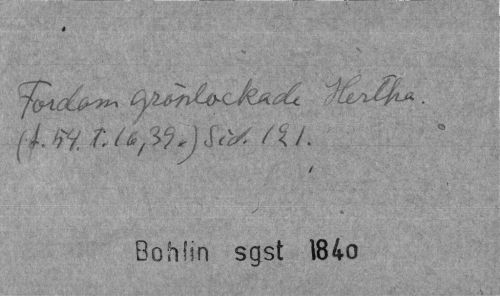 Fordom grönlockade Hertha.
(f. 54. T. 16, 39.) Sid. 121.
Bohlin sgst 1840